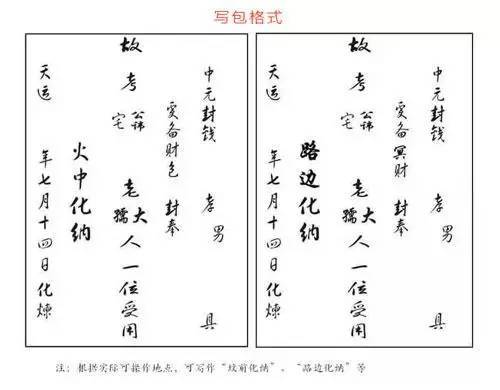 写包格式
中元封钱 孝男 具
爰备财包 封奉
故考 公讳 宅 老大孺人一位受用
火中化纳
天运 年七月十四日化煉
中元封钱 孝男 具
爰备冥财 封奉
故考 公讳 宅 老大孺人一位受用
路边化纳
天运 年七月十四日化煉
注：根据实际可操作地点，可写作“坟前化纳”、“路边化纳”等